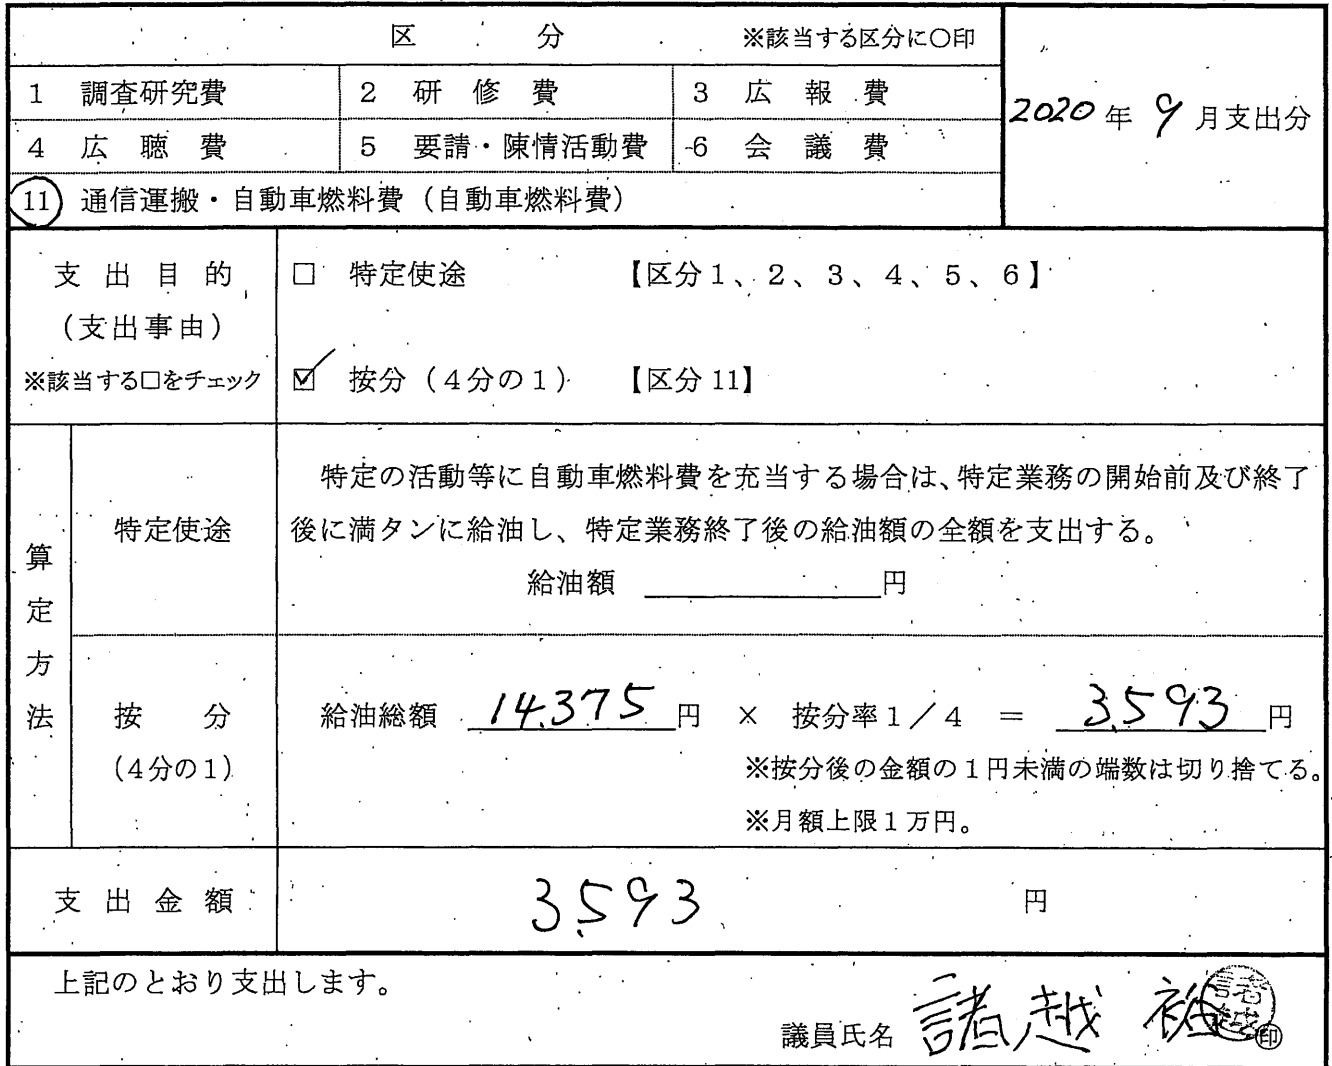 区 分 ※該当する区分に○印
1 調査研究費 2 研修費 3 広報費
2020年9月支出分
4 広聴費 5 要請・陳情活動費 6 会議費
11 通信運搬・自動車燃料費（自動車燃料費）
支出目的
（支出事由）
※該当する□をチェック
□ 特定使途 【区分1、2、3、4、5、6】
☑ 按分（4分の1） 【区分11】
算定方法
特定使途
特定の活動等に自動車燃料費を充当する場合は、特定業務の開始前及び終了
後に満タンに給油し、特定業務終了後の給油額の全額を支出する。
給油額 円
按分
（4分の1）
給油総額 14,375円 × 按分率1／4 ＝ 3,593円
※按分後の金額の1円未満の端数は切り捨てる。
※月額上限1万円。
支出金額 3,593 円
上記のとおり支出します。
議員氏名 諸越 裕 諸越 印